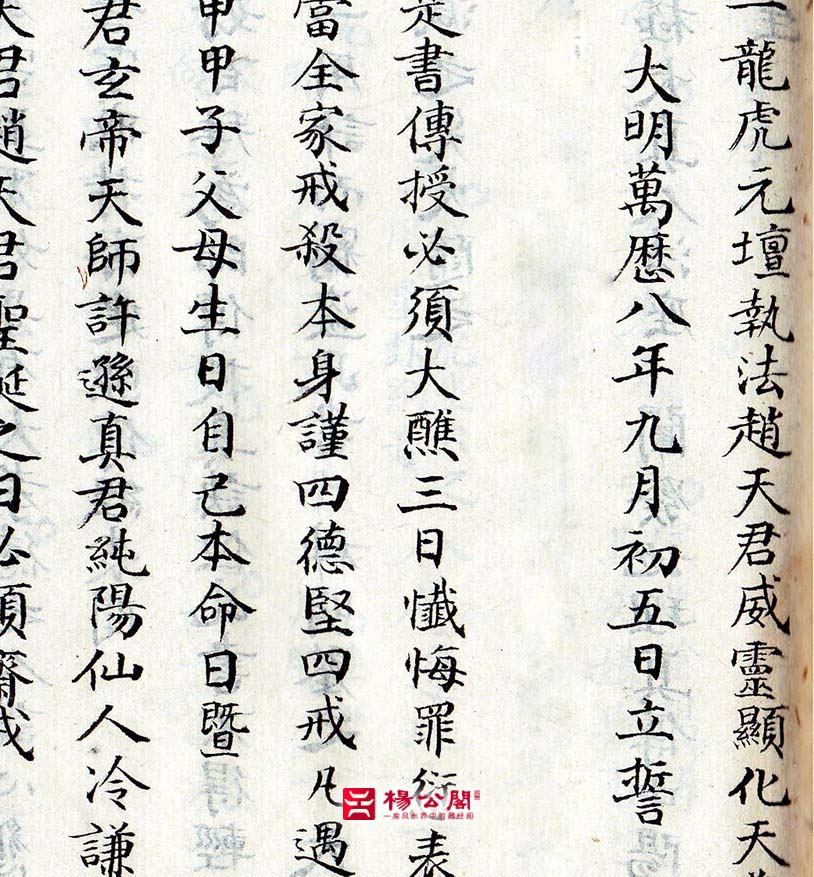 龍虎元壇執法趙天君威靈顯化天
大明萬曆八年九月初五日立誓
書傳授必須大醮三日懺悔罪衍表
當全家戒殺本身謹四德堅四戒凡遇
甲甲子父母生日自己本命日暨
君玄帝天師許遜真君純陽仙人冷謙
天君趙天君聖誕之日必須齋戒
楊公閣